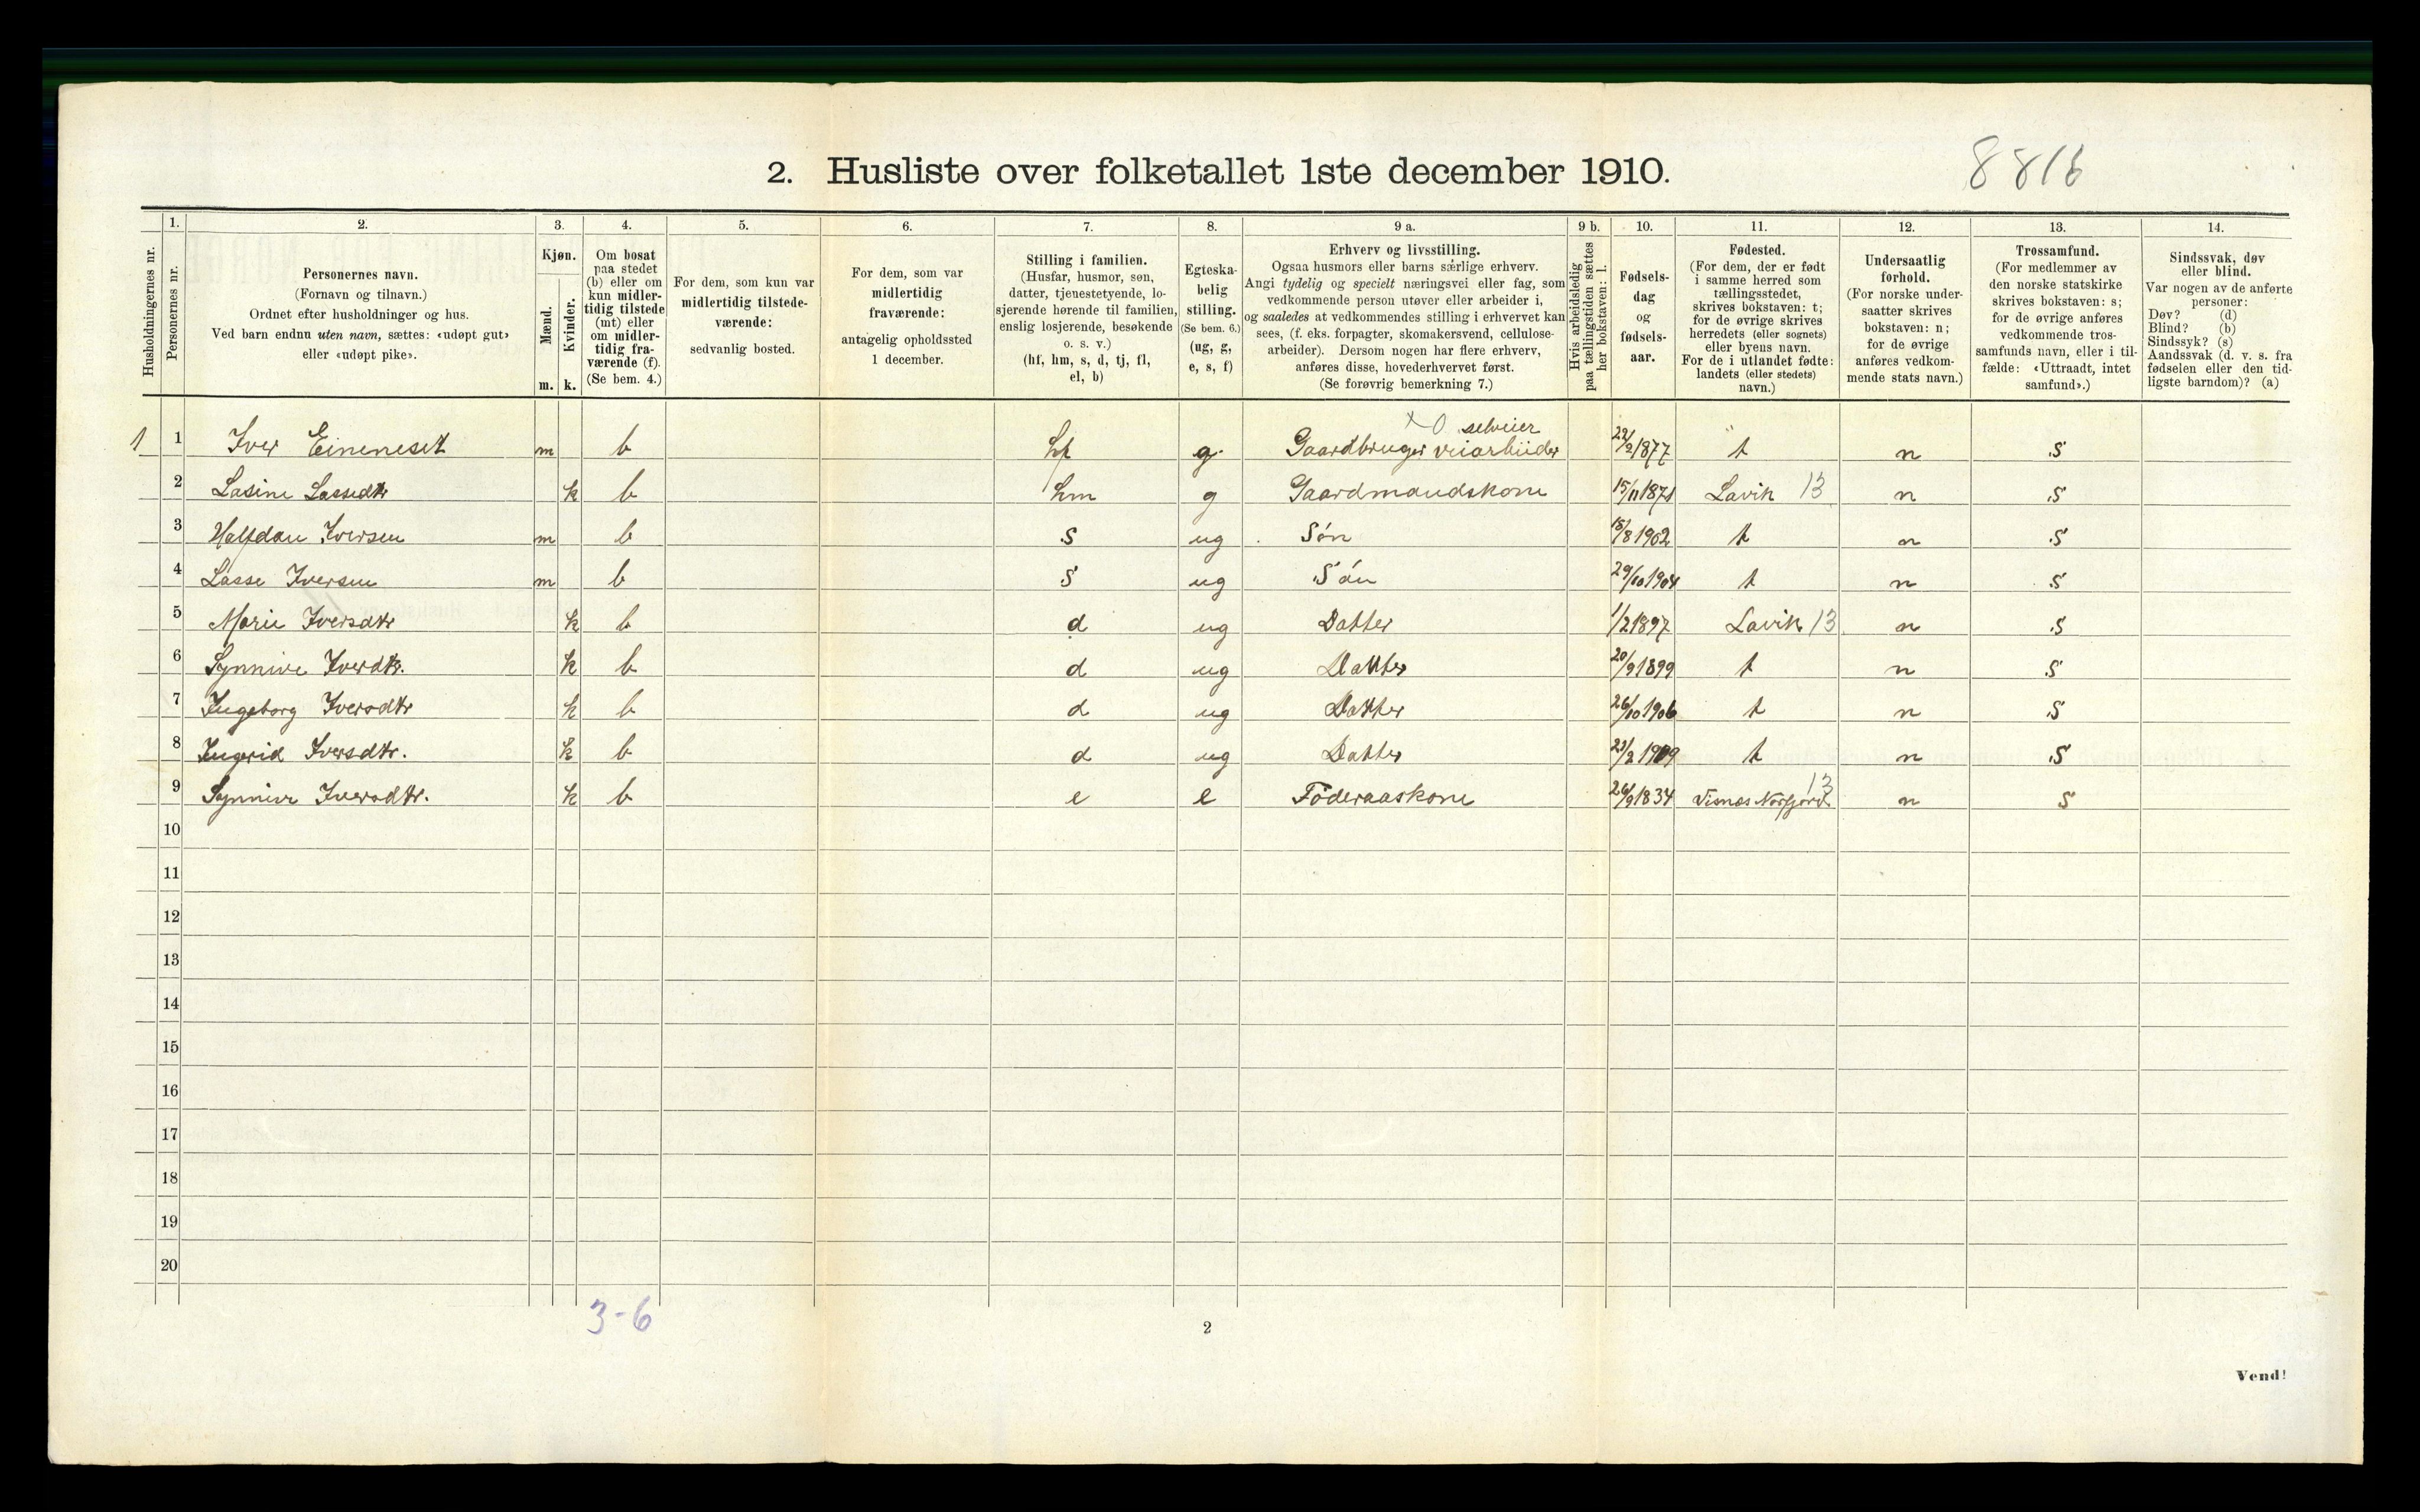 8816
2. Husliste over folketallet 1ste december 1910.
1. 2. 3. 4. 5. 6. 7. 8. 9 a. 9 b. 10. 11. 12. 13. 14.
Husholdningernes nr.
Personernes nr.
Personernes navn.
(Fornavn og tilnavn.)
Ordnet efter husholdninger og hus.
Ved barn endnu uten navn, sættes: «udøpt gut»
eller «udøpt pike».
Kjøn.
Mænd.
Kvinder.
m. k.
Om bosat
paa stedet
(b) eller om
kun midler-
tidig tilstede
(mt) eller
om midler-
tidig fra-
værende (f).
(Se bem. 4.)
For dem, som kun var
midlertidig tilstede-
værende:
sedvanlig bosted.
For dem, som var
midlertidig
fraværende:
antagelig opholdssted
1 december.
Stilling i familien.
(Husfar, husmor, søn,
datter, tjenestetyende, lo-
sjerende hørende til familien,
enslig losjerende, besøkende
o. s. v.)
(hf, hm, s, d, tj, fl,
el, b)
Egteska-
belig
stilling.
(Se bem. 6.)
(ug, g,
e, s, f)
Erhverv og livsstilling.
Ogsaa husmors eller barns særlige erhverv.
Angi tydelig og specielt næringsvei eller fag, som
vedkommende person utøver eller arbeider i,
og saaledes at vedkommendes stilling i erhvervet kan
sees, (f. eks. forpagter, skomakersvend, cellulose-
arbeider). Dersom nogen har flere erhverv,
anføres disse, hovederhvervet først.
(Se forøvrig bemerkning 7.)
Hvis arbeidsledig
paa tællingstiden sættes
her bokstaven: l.
Fødsels-
dag
og
fødsels-
aar.
Fødested.
(For dem, der er født
i samme herred som
tællingsstedet,
skrives bokstaven: t;
for de øvrige skrives
herredets (eller sognets)
eller byens navn.
For de i utlandet fødte:
landets (eller stedets)
navn.)
Undersaatlig
forhold.
(For norske under-
saatter skrives
bokstaven: n;
for de øvrige
anføres vedkom-
mende stats navn.)
Trossamfund.
(For medlemmer av
den norske statskirke
skrives bokstaven: s;
for de øvrige anføres
vedkommende tros-
samfunds navn, eller i til-
fælde: «Uttraadt, intet
samfund».)
Sindssvak, døv
eller blind.
Var nogen av de anførte
personer:
Døv? (d)
Blind? (b)
Sindssyk? (s)
Aandssvak (d. v. s. fra
fødselen eller den tid-
ligste barndom)? (a)
x 0 selveier
1 1 Iver Eineneset m b hf g Gaardbruger veiarbeider 22/2 1877 t n s
2 Lasine Lassedtr k b hm g Gaardmandskone 15/11 1871 Lavik 13 n s
3 Halfdan Iversen m b s ug Søn 15/8 1902 t n s
4 Lasse Iversen m b s ug Søn 29/10 1904 t n s
5 Marie Iversdtr k b d ug Datter 1/2 1897 Lavik 13 n s
6 Synnive Iverdtr. k b d ug Datter 20/9 1899 t n s
7 Ingeborg Iversdtr k b d ug Datter 26/10 1906 t n s
8 Ingrid Iversdtr. k b d ug Datter 23/2 1909 t n s
9 Synnive Iversdtr. k b e e Föderaaskone 26/9 1834 Visnes Norfjord 13 n s
10
11
12
13
14
15
16
17
18
19
20
3-6
2
Vend!